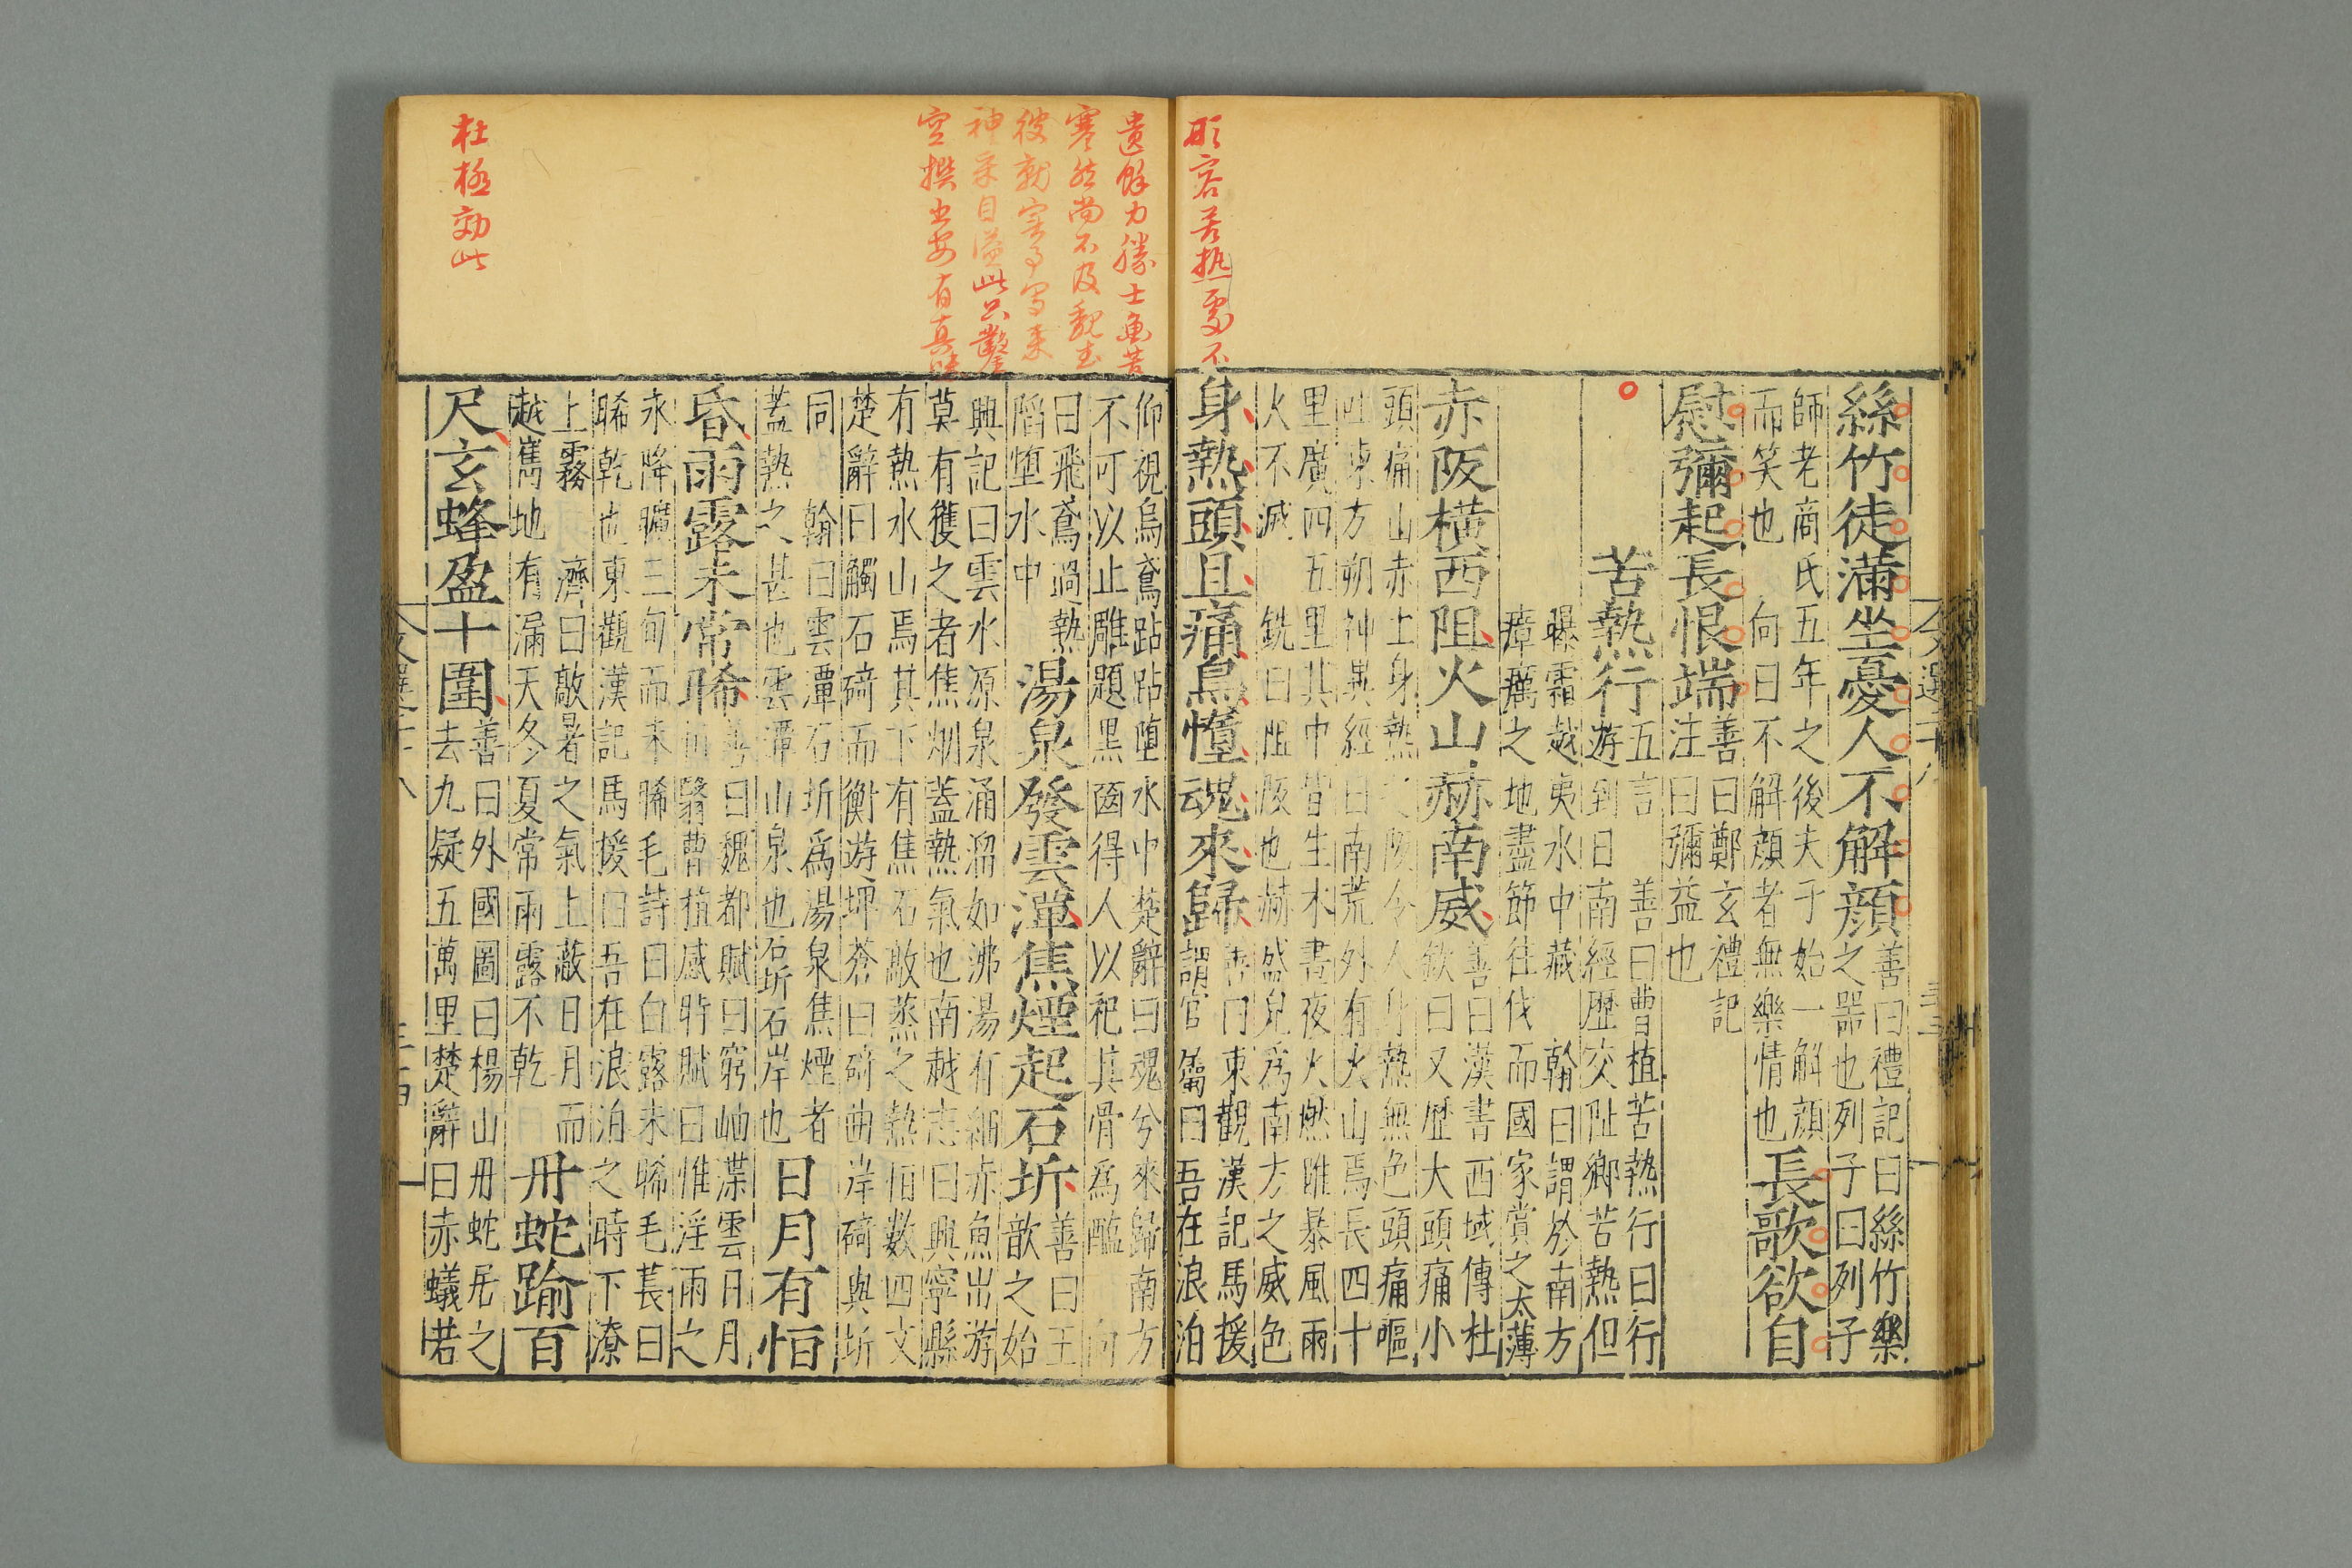 形容苦熱處不
絲竹徒滿坐憂人不解顔善曰禮記曰絲竹樂
之器也列子曰列子
師老商氏五年之後夫子始一解顔
而笑也 向曰不解顔者無樂情也長歌欲自
慰彌起長恨端善曰鄭玄禮記
注曰彌益也
苦熱行五言 善曰曹植苦熱行曰行
遊到日南經歷交阯鄉苦熱但
曝霜越夷水中藏 翰曰謂於南方
瘴癘之地盡節往伐而國家賞之太薄
赤阪橫西阻火山赫南威善曰漢書西域傳杜
欽曰又歷大頭痛小
頭痛山赤土身熱之阪令人身熱無色頭痛嘔
吐東方朔神異經曰南荒外有火山焉長四十
里廣四五里其中皆生木晝夜火燃雖暴風雨
火不滅 銑曰阻阪也赫盛皃爲南方之威色
身熱頭且痛鳥憧魂來歸善曰東觀漢記馬援
謂官屬曰吾在浪泊
遺餘力勝士衡苦
寒然尚不及魏武
彼就實事寫來
神采自溢此只鑿
空撰出安有真味
仰視烏鳶跕跕墮水中楚辭曰魂兮來歸南方
不可以止雕題黑齒得人以祀其骨爲醢 向
曰飛鳶過熱
陷墮水中湯泉發雲潭焦煙起石圻善曰王
歆之始
興記曰雲水源泉涌溜如沸湯有細赤魚出游
莫有獲之者焦烟蓋熱氣也南越志曰興寧縣
有熱水山焉其下有焦石歊蒸之熱恒數四丈
楚辭曰觸石碕而衡遊埤蒼曰碕曲岸碕與圻
同 翰曰雲潭石圻爲湯泉焦煙者
蓋熱之甚也雲潭山泉也石圻石岸也日月有恒
昏雨露未常晞善曰魏都賦曰窮岫渫雲日月
恒翳曹植感時賦曰惟淫雨之
永降曠三旬而未晞毛詩曰白露未晞毛萇曰
晞乾也東觀漢記馬援曰吾在浪泊之時下潦
上霧 濟曰歊暑之氣上蔽日月而
越嶲地有漏天冬夏常雨露不乾丹蛇踰百
尺玄蜂盈十圍善曰外國圖曰楊山丹蛇居之
去九疑五萬里楚辭曰赤蟻若
杜極効此
文選二十八